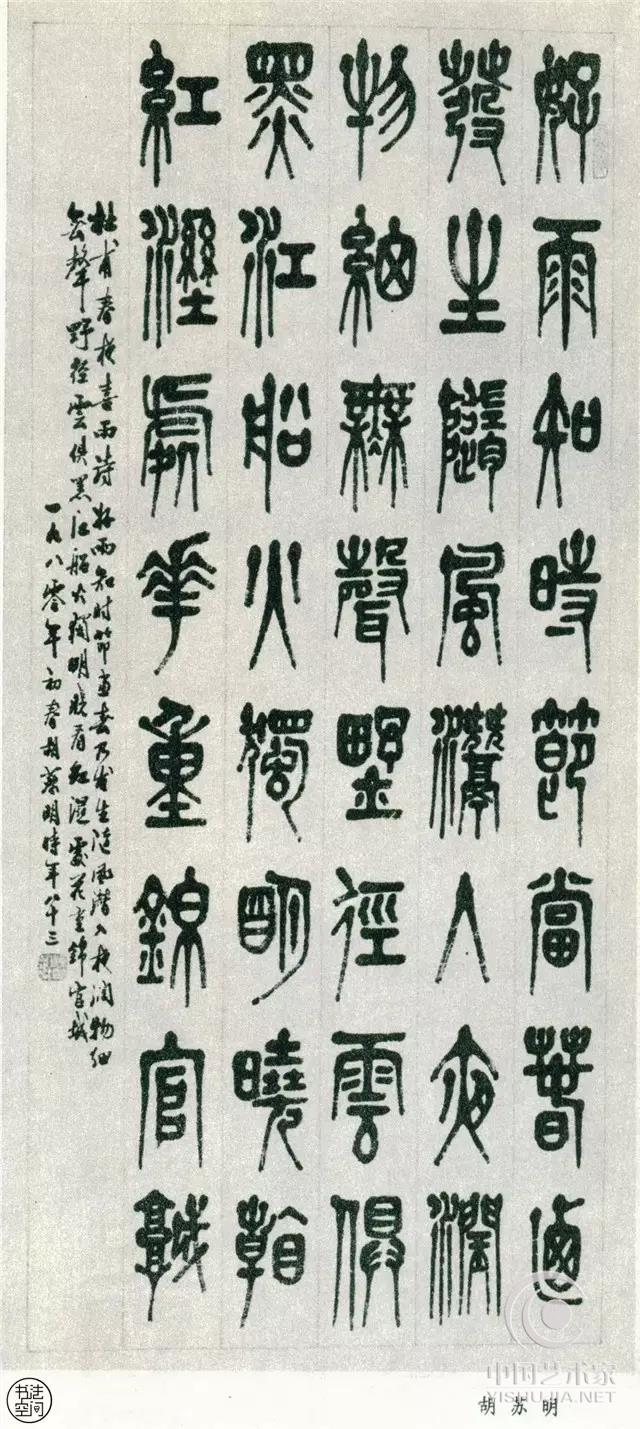 好雨知時節當春迺
發生隨風潛入夜潤
物細無聲野徑雲俱
黑江船火獨明曉看
紅溼處華重錦官城
杜甫春夜喜雨诗 好雨知时節當春乃发生随風潜入夜润物细
無聲野徑雲俱黑江船火獨明曉看红濕處花重錦官城
一九八零年初春胡蘇明時年八十三
中国艺术家
YISHUJIA.NET
胡苏明
书法
空间